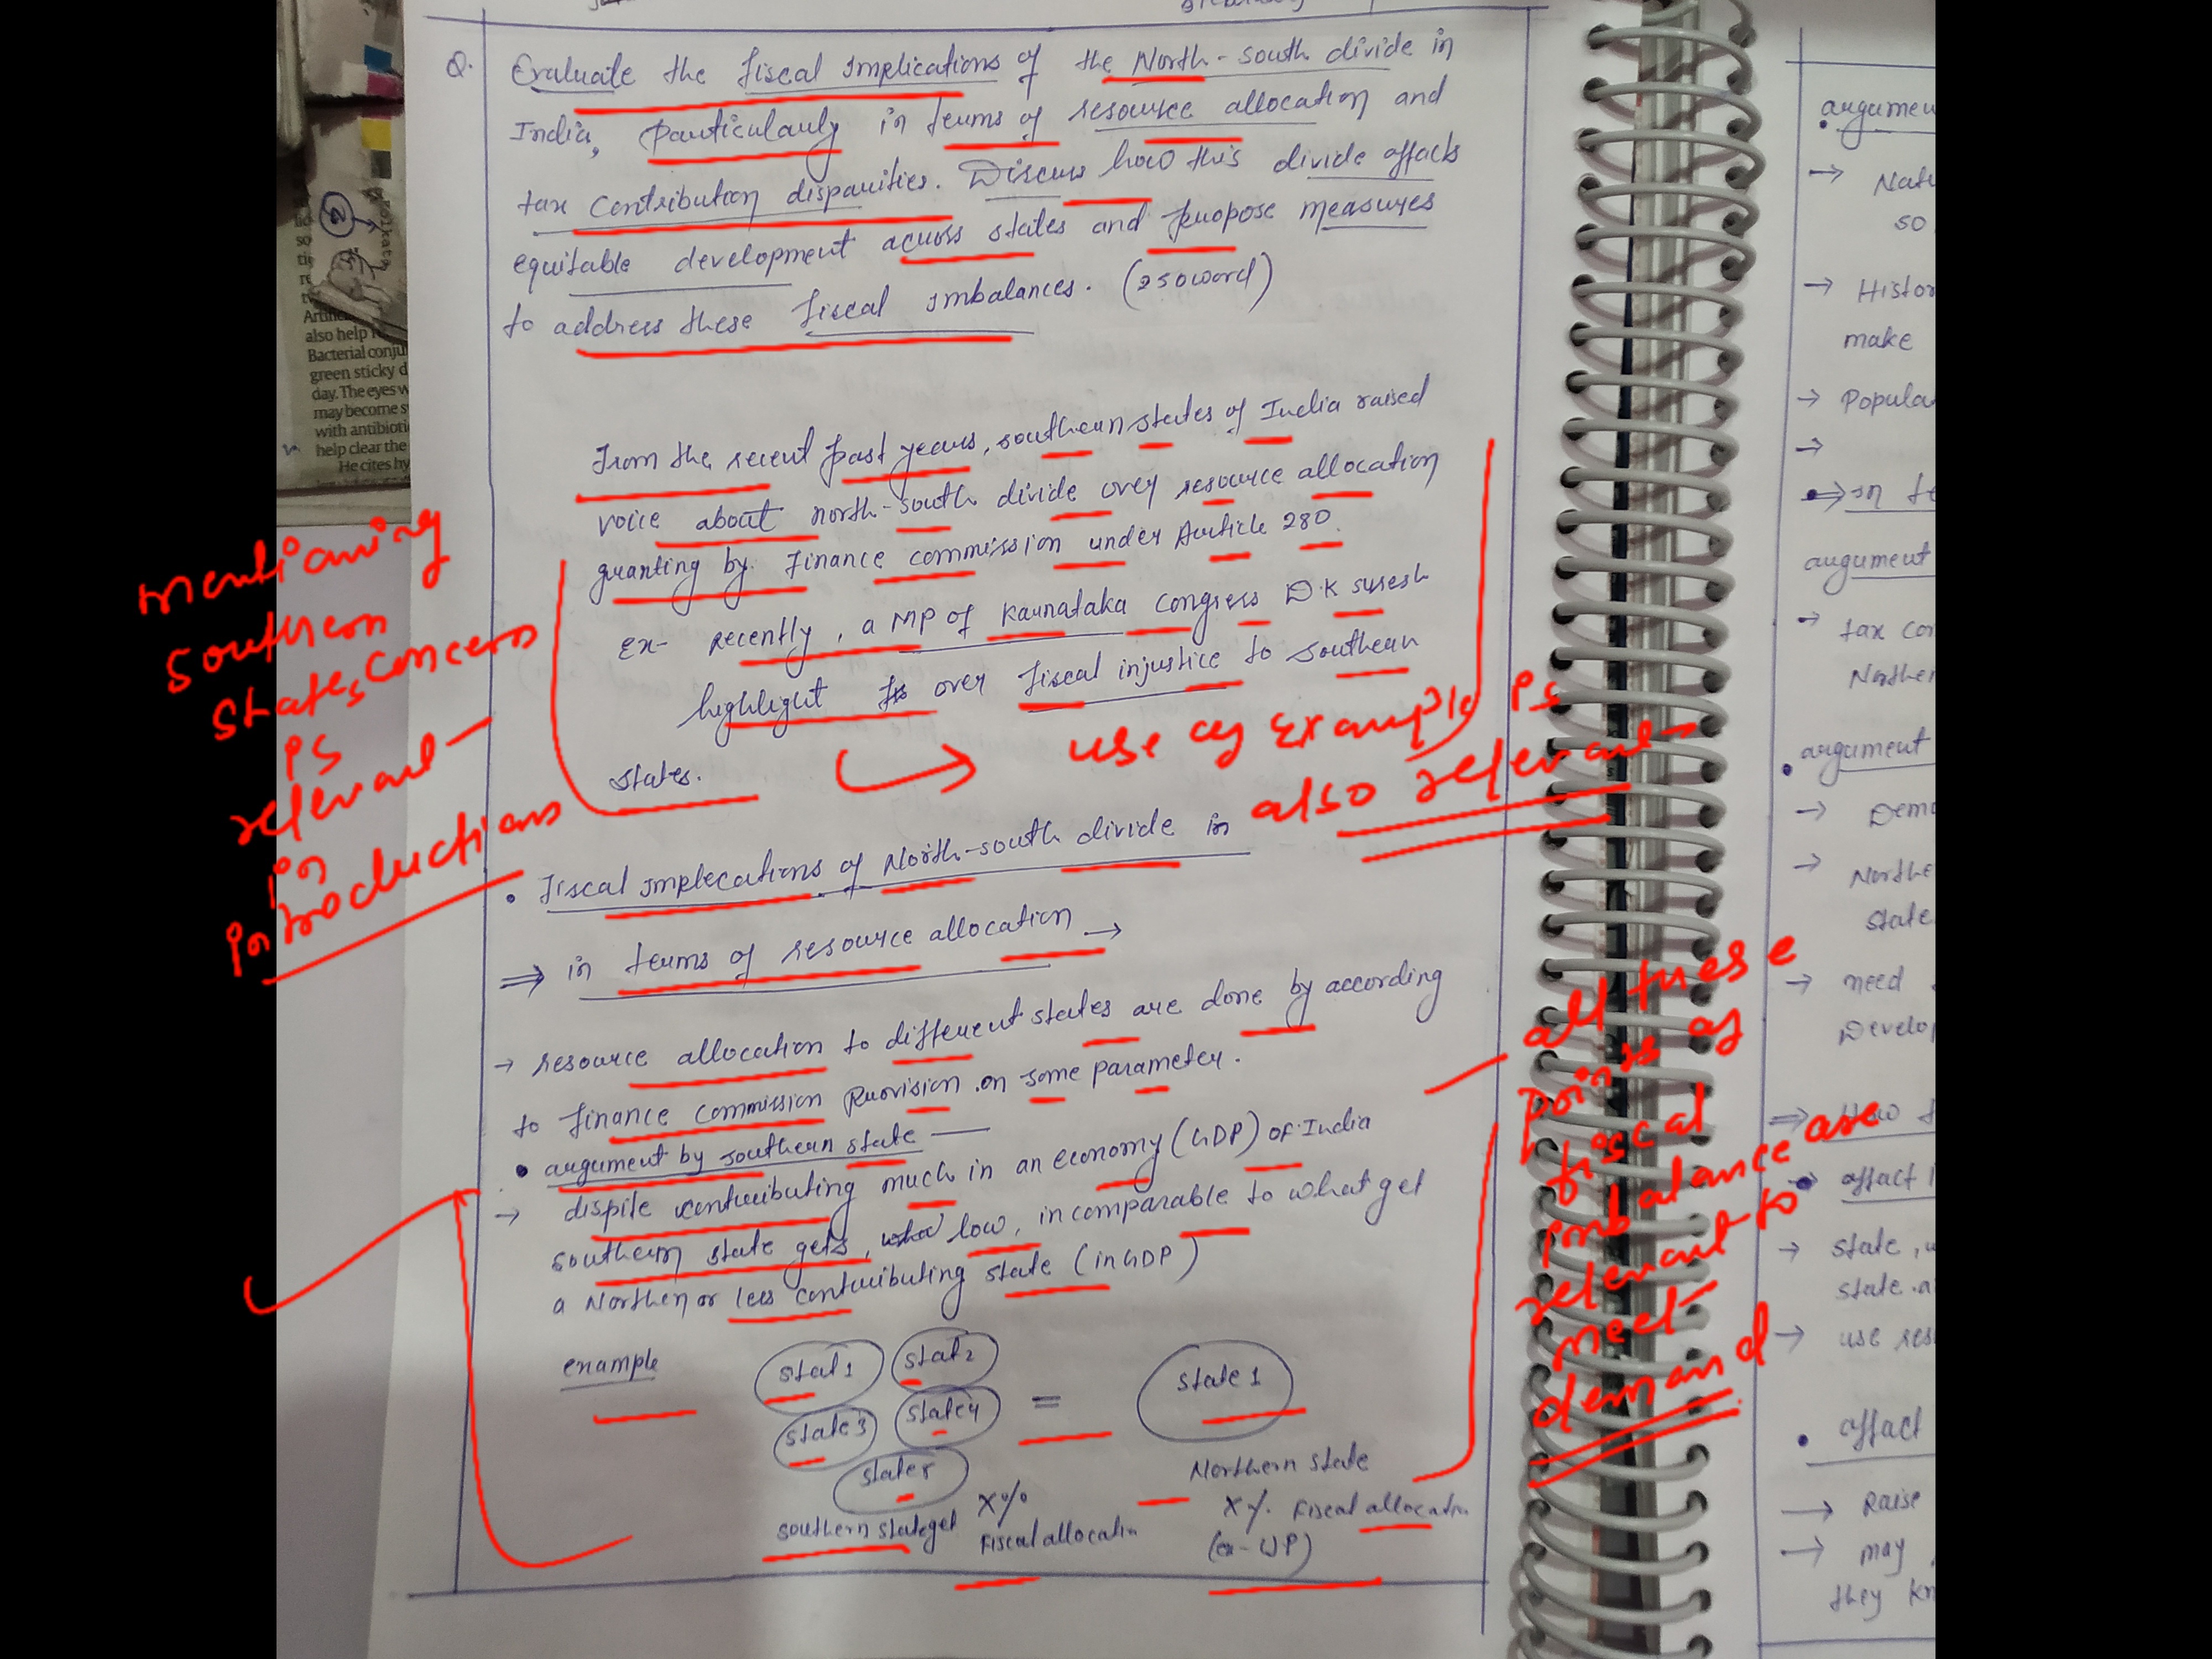 Q. Evaluate the fiscal implications of the North-south divide in
India, particularly in terms of resource allocation and
tax contribution disparities. Discuss how this divide affects
equitable development across states and propose measures
to address these fiscal imbalances. (250word)
From the recent past years, southern states of India raised
voice about north-south divide over resource allocation
granting by Finance commission under Article 280.
Ex- recently, a MP of Karnataka congress D.K suresh
highlight over fiscal injustice to southern
states.
mentioning
southern
states concern
is
relevant
in
introductions
use of example is
also relevant
• Fiscal implecations of North-south divide in
⇒ in terms of resource allocation →
→ resource allocation to different states are done by according
to finance commission provision on some parameter.
• argument by southern state —
→ dispite contributing much in an economy (GDP) of India
southern state gets, low, incomparable to what get
a Northen or less contributing state (in GDP)
all these
points of
fiscal
imbalance are
relevant to
meet
demand
example
stat1
stat2
state3
state4
state5
=
state 1
southern state get X% Fiscal allocation
Northern state
X% Fiscal allocation
(ex- UP)
also help
Bacterial conju
green sticky d
day. The eyes w
may become s
with antibioti
help clear the
He cites hy
argumen
→ Nat
so
→ Histor
make
→ Popula
→
⇒ in te
argument
→ tax con
Norther
• argument
→ Demo
→ Northe
state
→ need
Develo
⇒ How
• affect
→ state, u
state.
→ use res
• affect
→ Raise
→ may
they kn